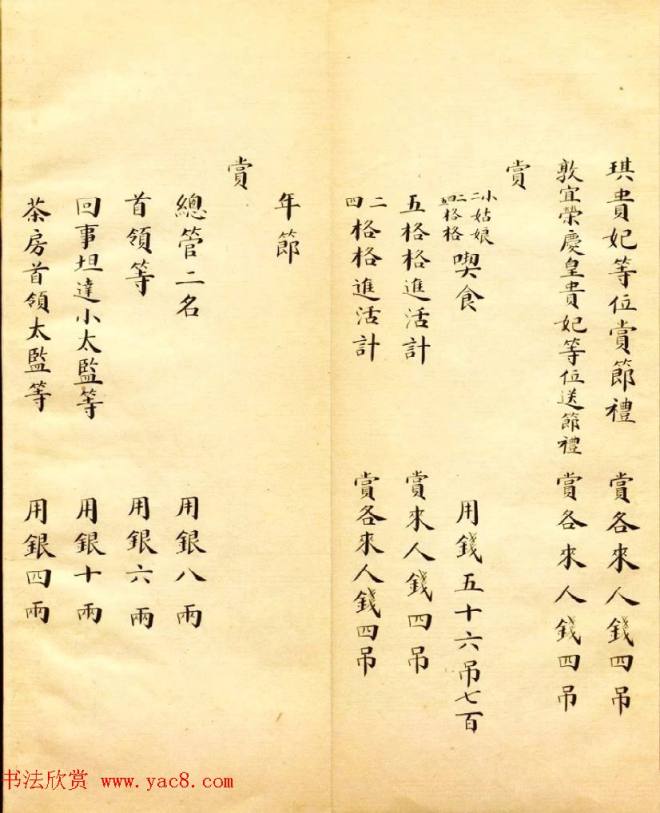 琪貴妃等位賞節禮 賞各來人錢四吊
敦宜榮慶皇貴妃等位送節禮 賞各來人錢四吊
賞
小姑娘
二二四格格 喫食 用錢五十六吊七百
五格格進活計 賞來人錢四吊
二四格格進活計 賞各來人錢四吊
年節
賞
總管二名 用銀八兩
首領等 用銀六兩
回事坦達小太監等 用銀十兩
茶房首領太監等 用銀四兩
书法欣赏 www.yac8.com